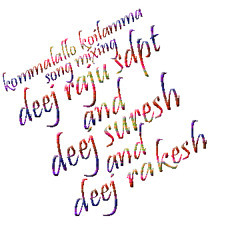 kommalallo koilamma
song mixing
deej raju sdpt
and
deej suresh
and
deej rakesh